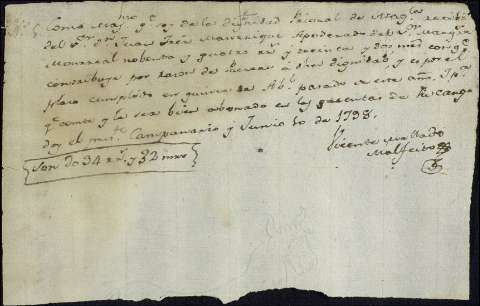 Como May.mo q.e soy de la dignidad Prioral de Mag.la recibi
del S.r D.n Juan Jose Manrrique Apoderado del S.r Marques
Monrreal nobenta y quatro rr.s y treinta y dos mrs con q.e
contribuye por razon de yervas a dicha dignidad, y es por el
plazo cumplido en quince de Ab.l pasado de este año. Y p.a
q.e conste y le sea bien abonado en las quentas de su cargo
doy el pres.te Campanario y Junio 10 de 1798.
Son 94 rr.s y 32 mrs
Vicente